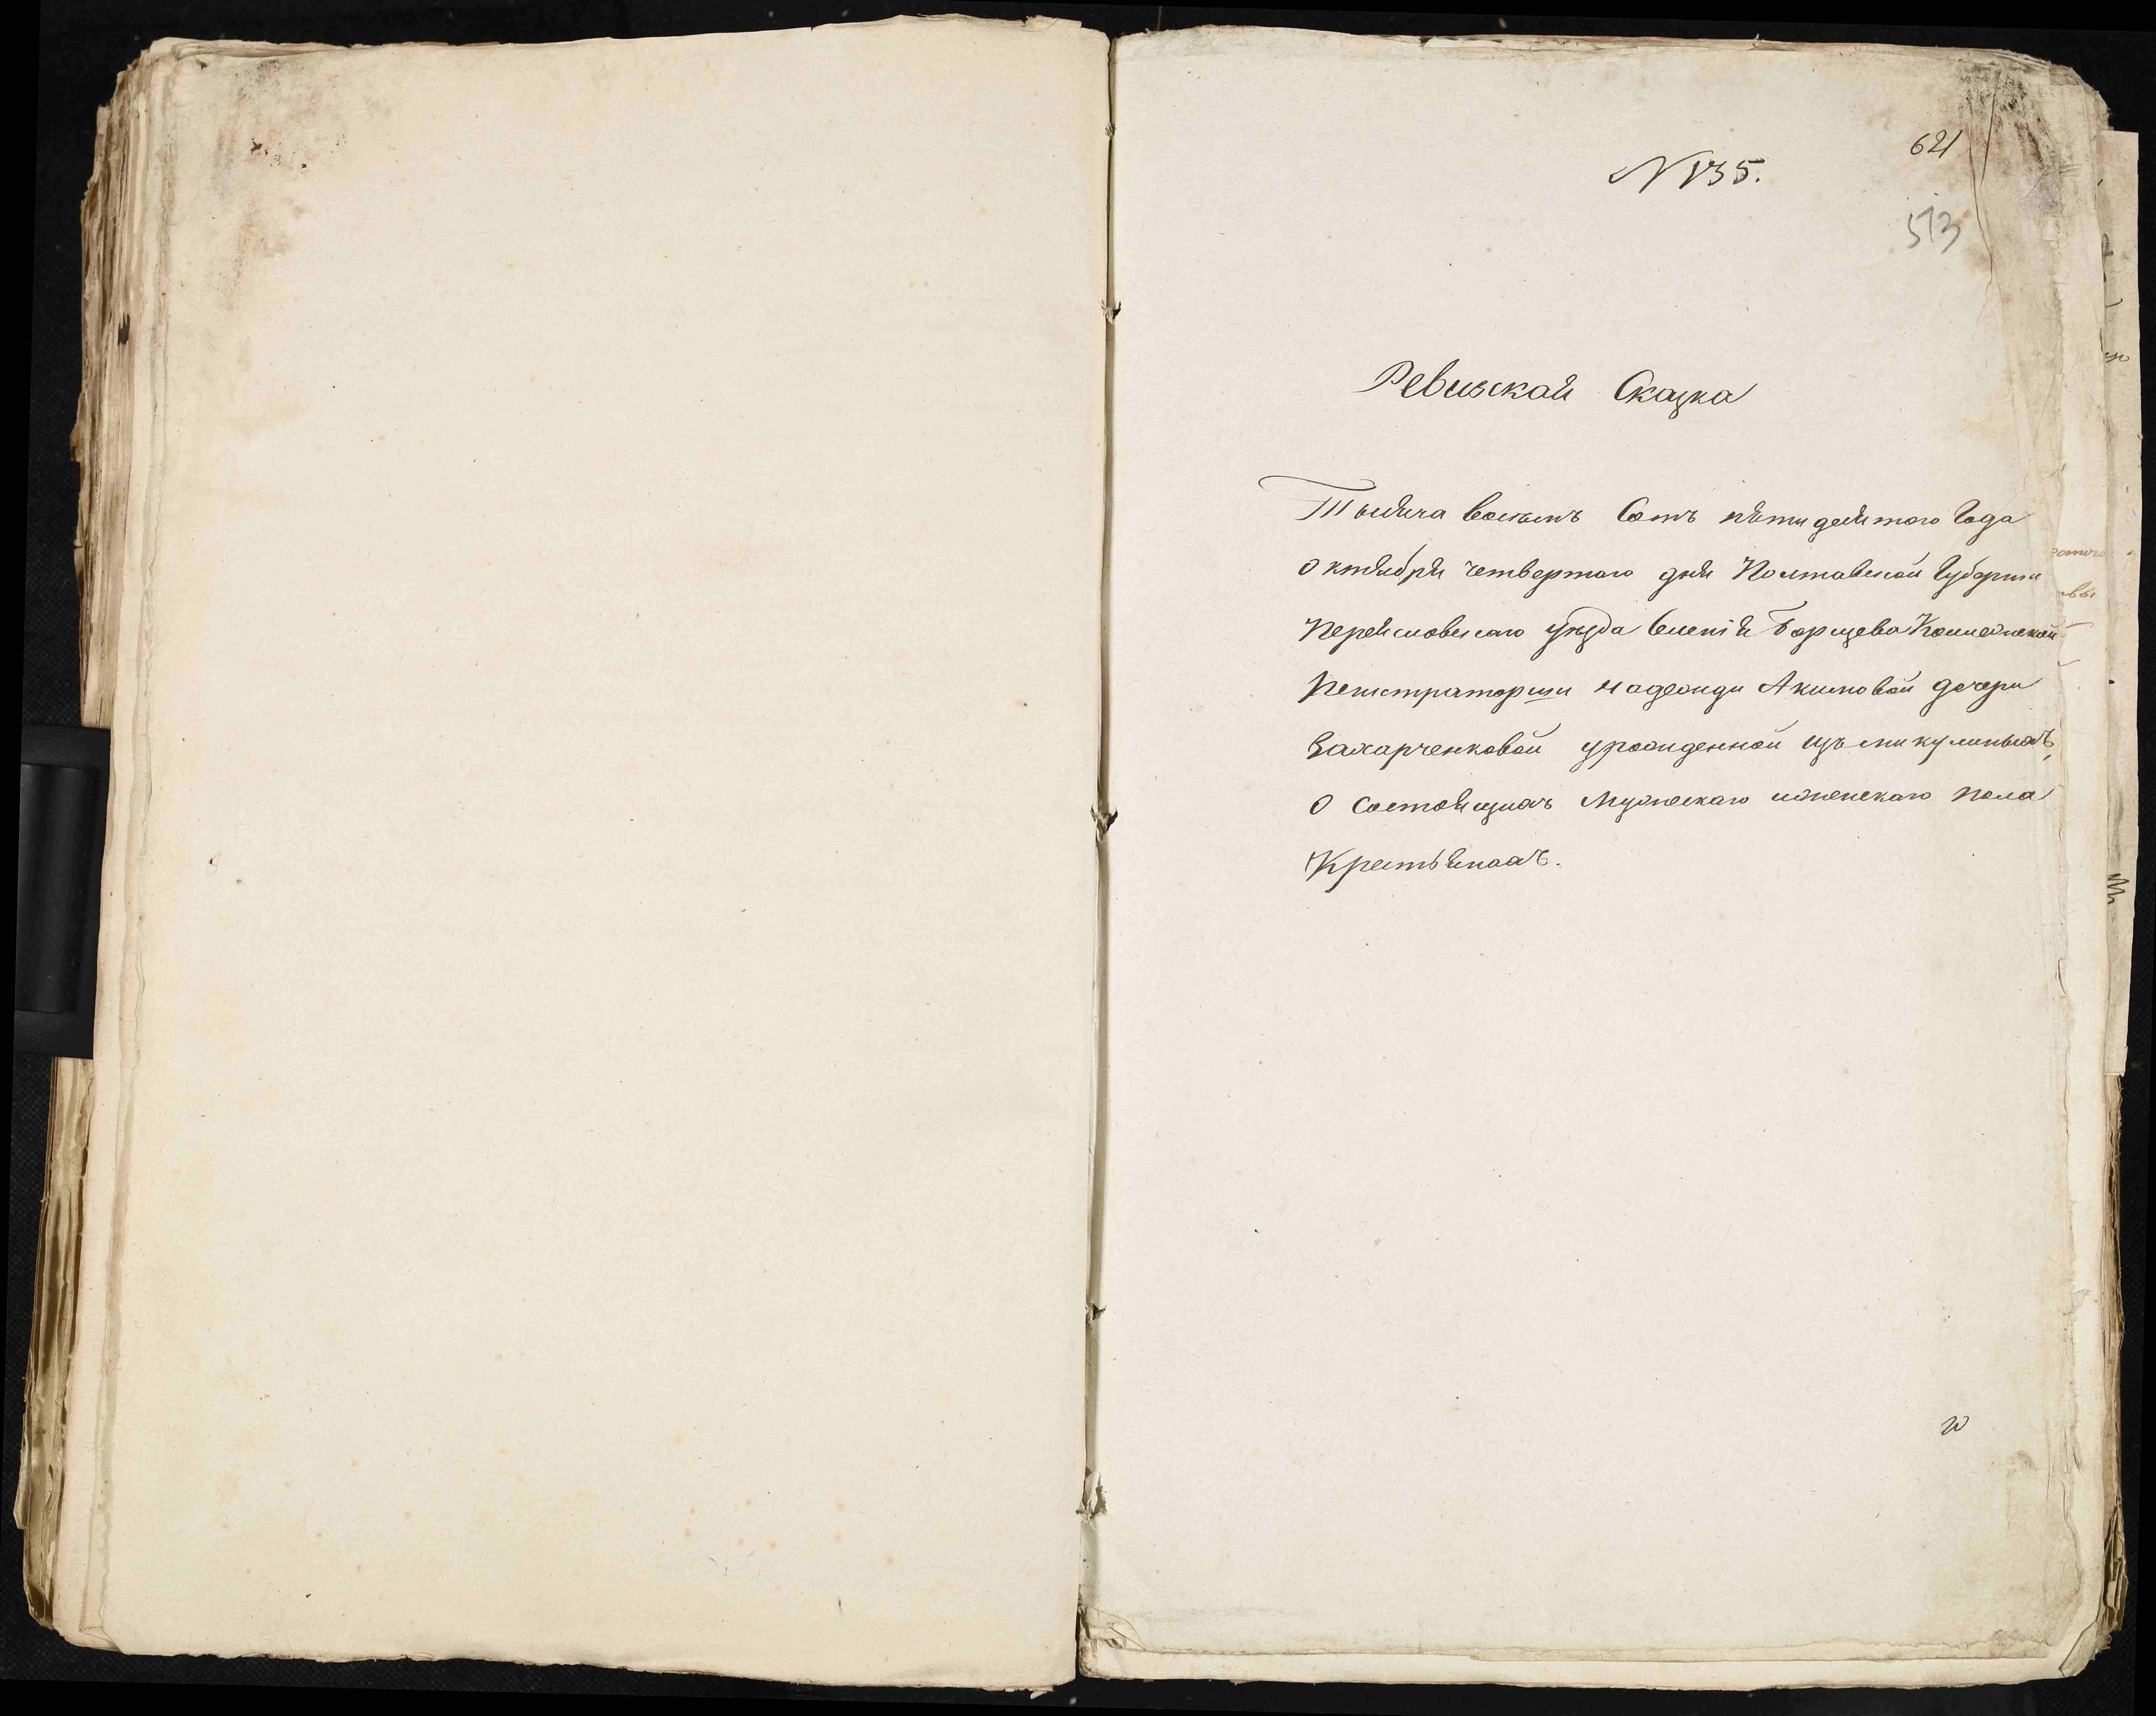 621
N 135.
513
Ревизская Сказка
Тысяча восемь Сотъ пятидесятого Года
октября четвертого дня Полтавской Губернии
Переясловского уезда Селения Борщева Коллежской
Регистраторши Надежди Акимовой дочери
Захарченковой урожденной изъ Микулиныхъ,
о Состоящихъ Мужеска и женскаго пола
Крестьянахъ.